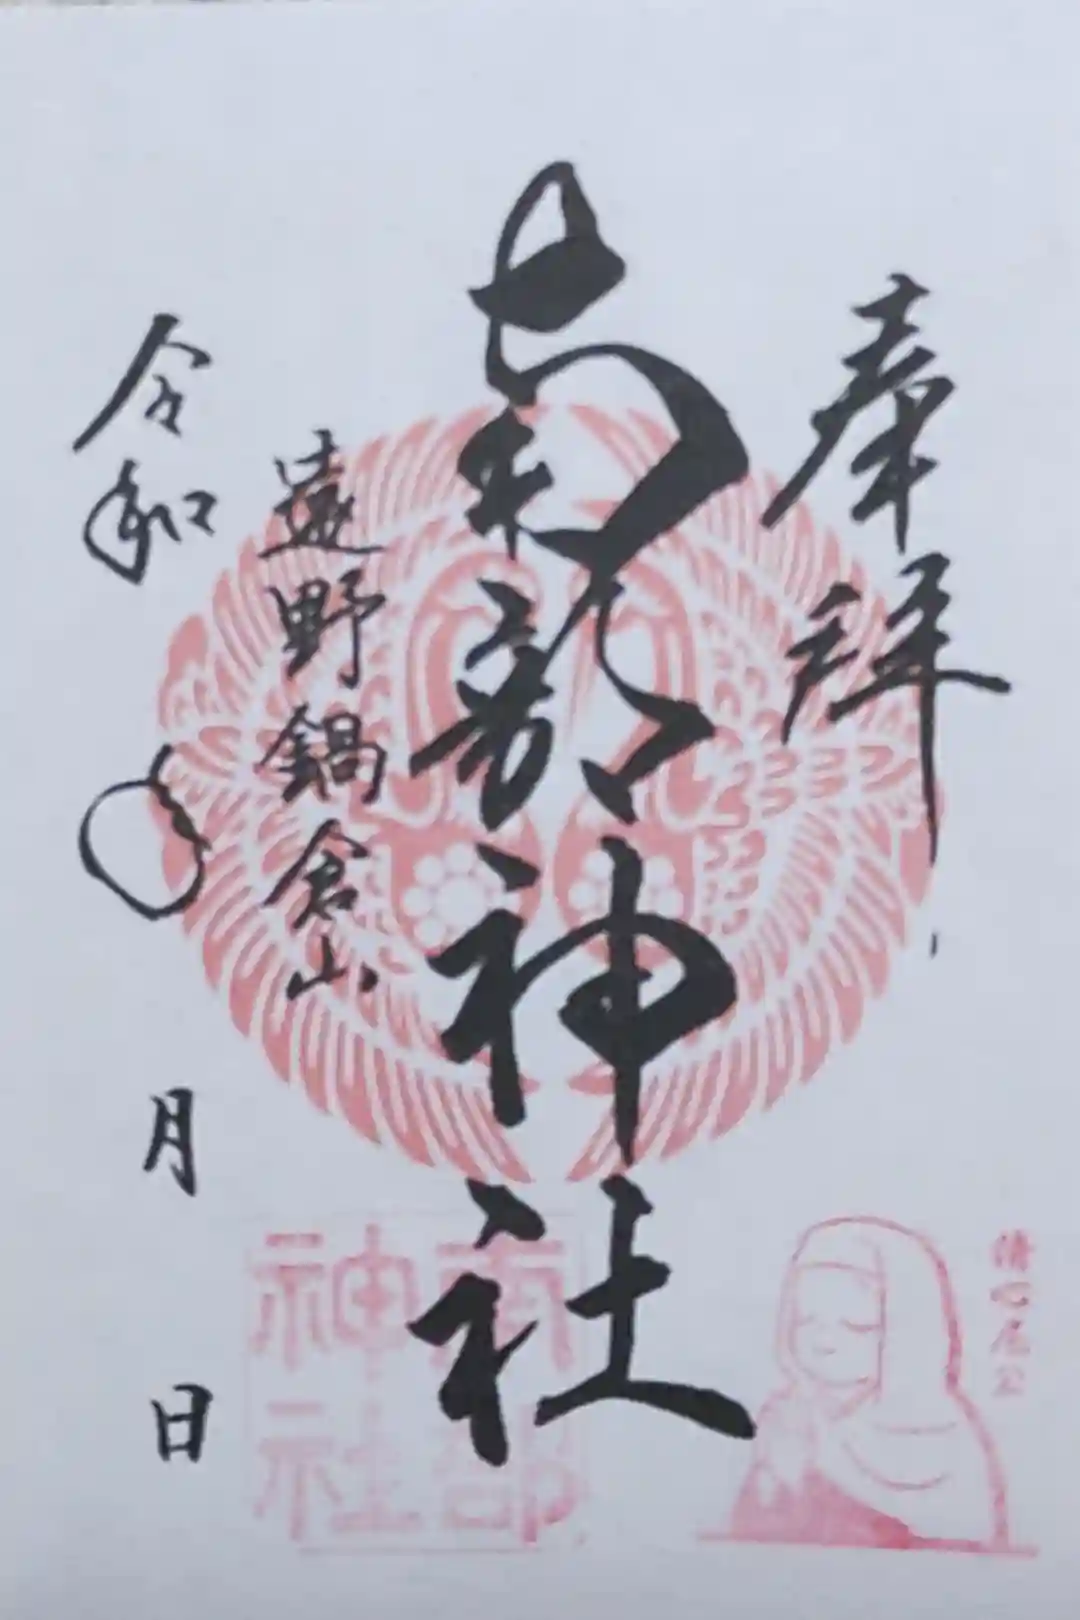 奉拝
南部神社
遠野鍋倉山
令和 〇 月 日
南部
神社
清心尼公